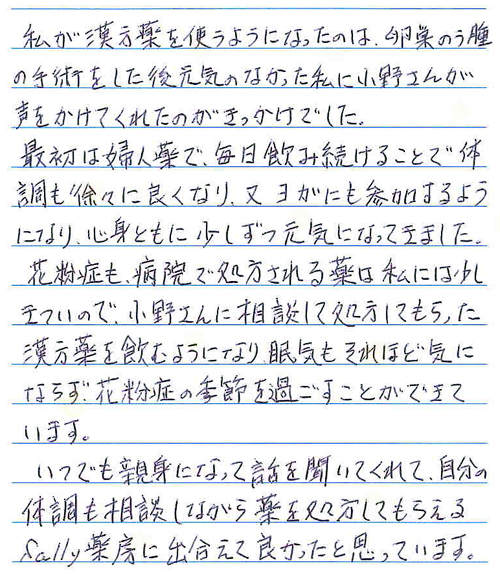 私が漢方薬を使うようになったのは、卵巣のう腫
の手術をした後元気のなかった私に小野さんが
声をかけてくれたのがきっかけでした。
最初は婦人薬で、毎日飲み続けることで体
調も徐々に良くなり、又ヨガにも参加するよう
になり、心身ともに少しずつ元気になってきました。
花粉症も、病院で処方される薬は私には少し
きついので、小野さんに相談して処方してもらった
漢方薬を飲むようになり、眠気もそれほど気に
ならず、花粉症の季節を過ごすことができて
います。
いつでも親身になって話を聞いてくれて、自分の
体調も相談しながら薬を処方してもらえる
Sally薬房に出合えて良かったと思っています。